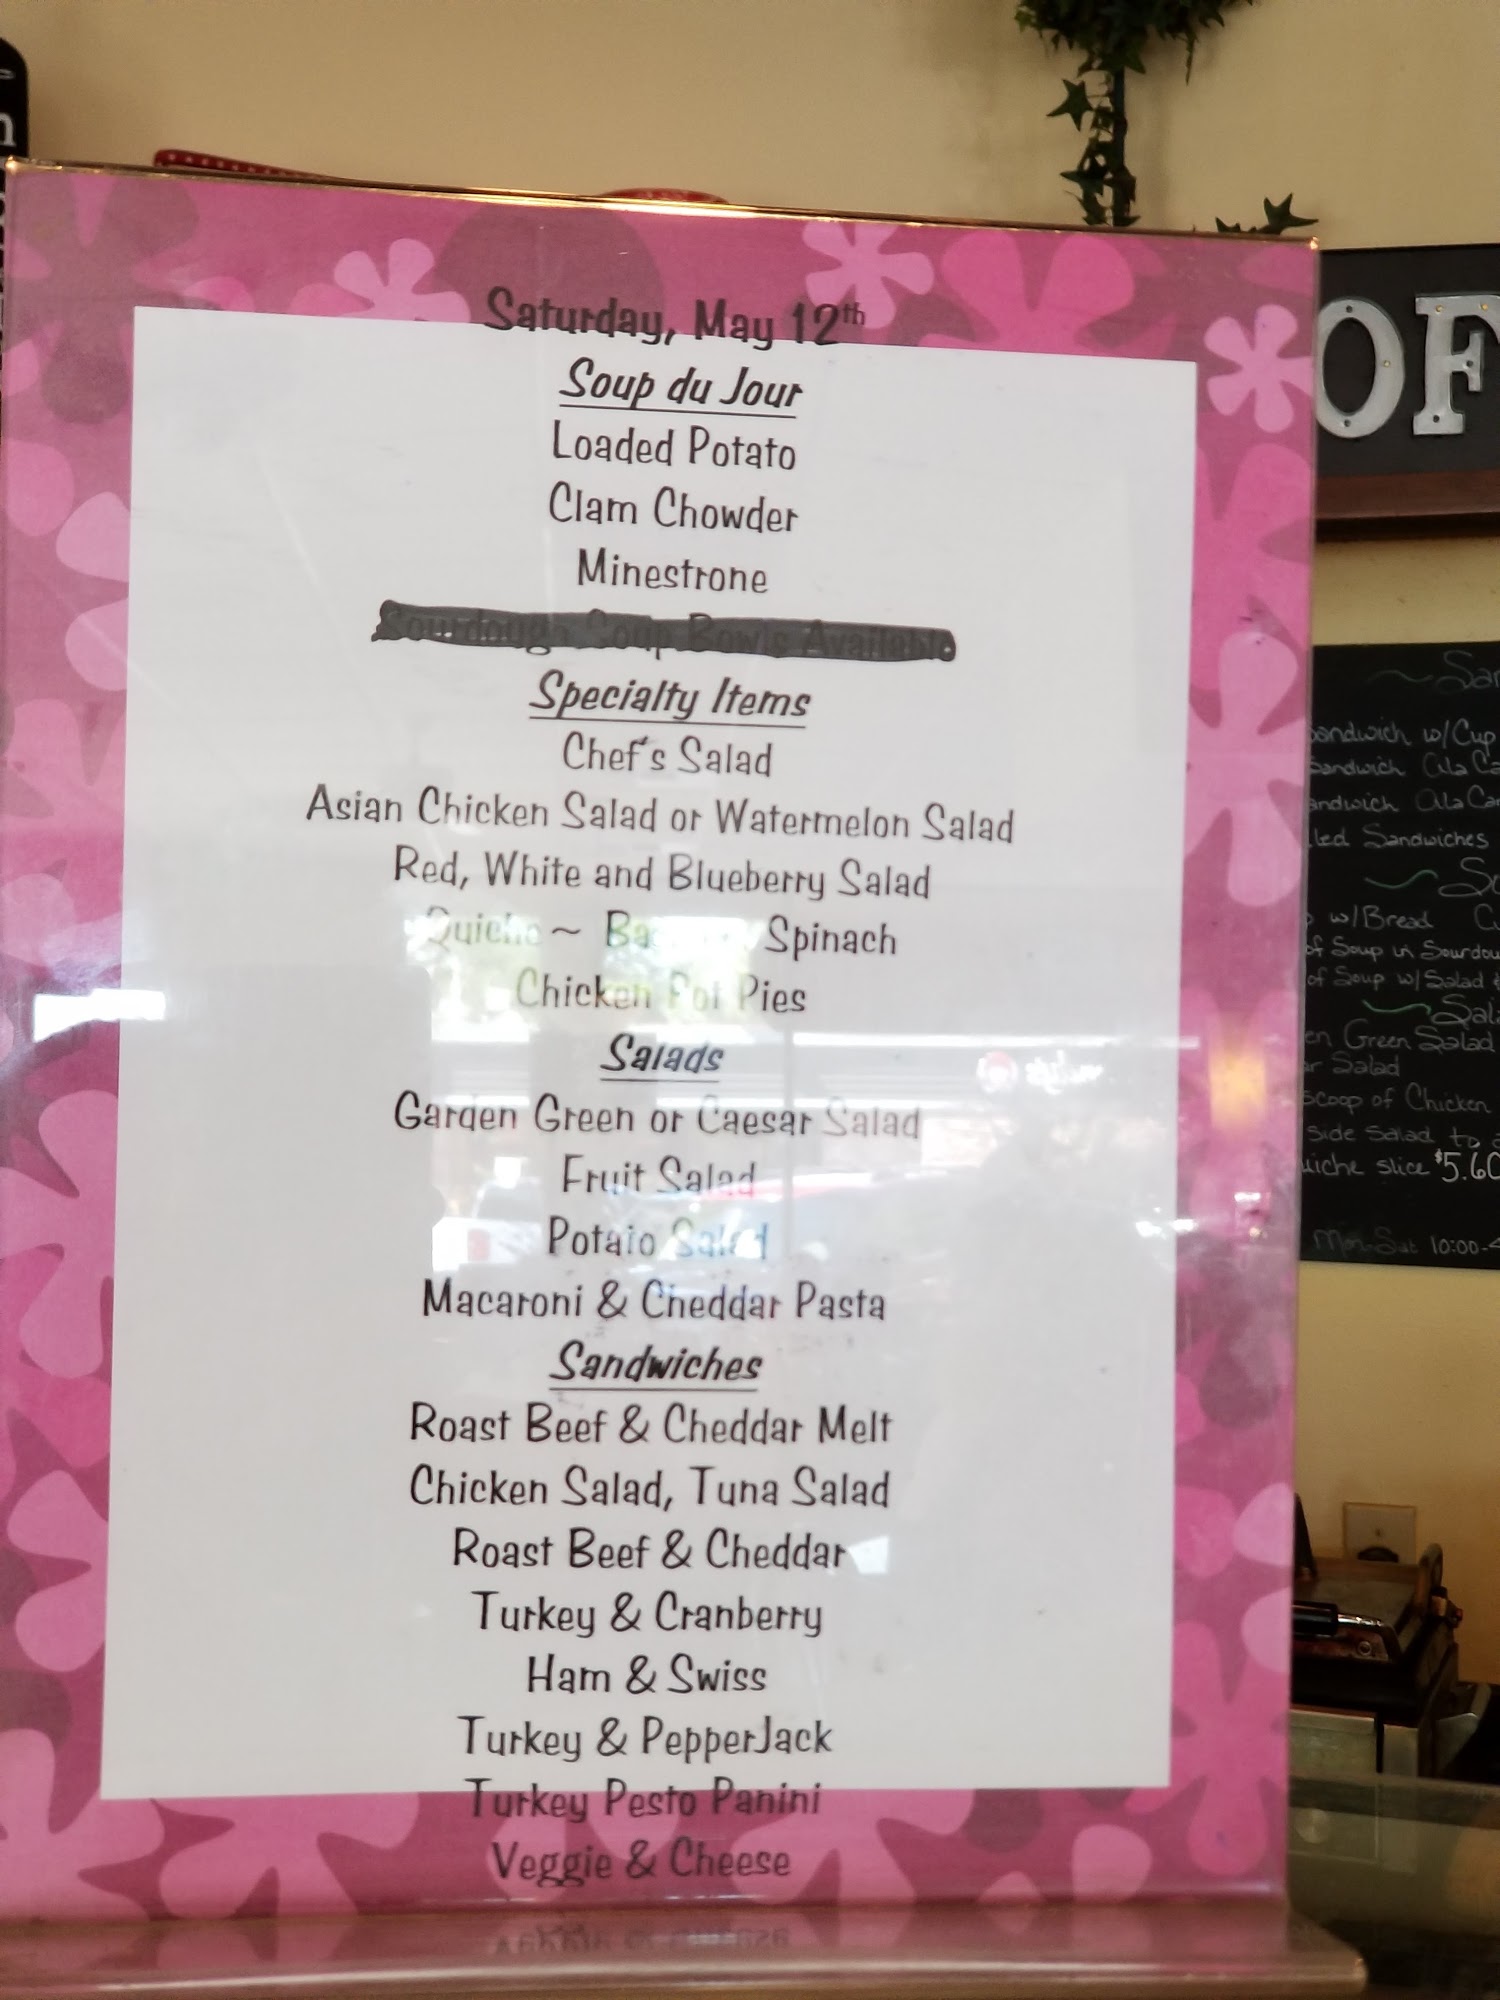 Saturday, May 12th
Soup du Jour
Loaded Potato
Clam Chowder
Minestrone
Sourdough Soup Bowls Available
Specialty Items
Chef's Salad
Asian Chicken Salad or Watermelon Salad
Red, White and Blueberry Salad
Quiche ~ Spinach
Chicken Pot Pies
Salads
Garden Green or Caesar Salad
Fruit Salad
Potato Salad
Macaroni & Cheddar Pasta
Sandwiches
Roast Beef & Cheddar Melt
Chicken Salad, Tuna Salad
Roast Beef & Cheddar
Turkey & Cranberry
Ham & Swiss
Turkey & PepperJack
Turkey Pesto Panini
Veggie & Cheese
OF
andwich w/Cup
andwich Ala Ca
andwich Ala Car
led Sandwiches
w/Bread
of Soup in Sourdou
of Soup w/Salad
en Green Salad
ar Salad
scoop of Chicken
side Salad to
uiche slice $5.60
Mon-Sat 10:00-4